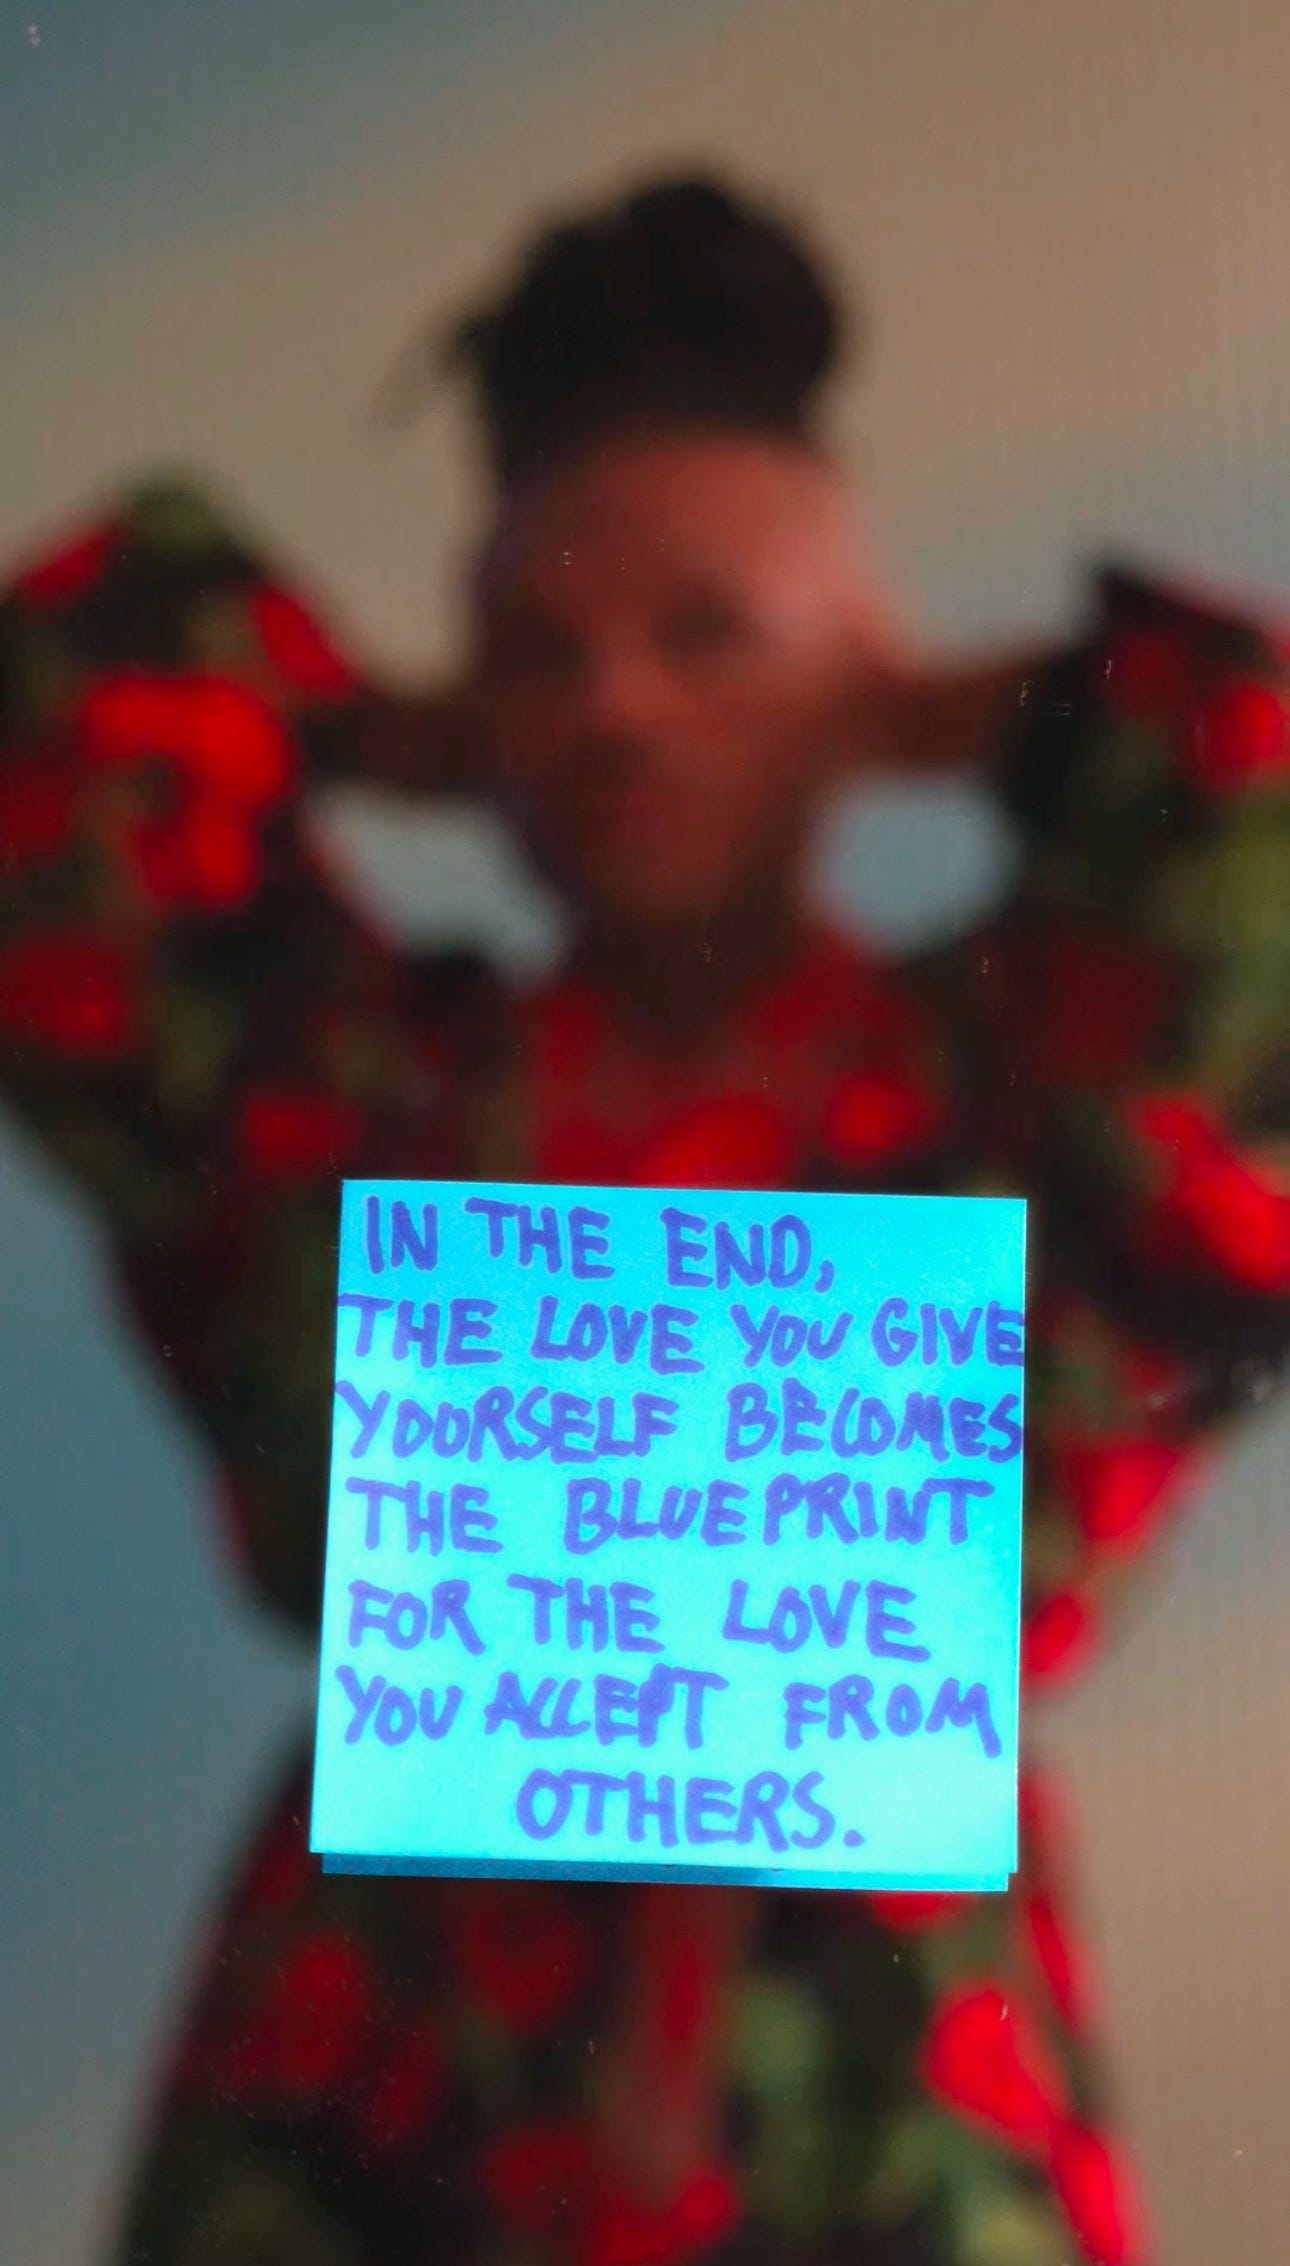 IN THE END,
THE LOVE YOU GIVE
YOURSELF BECOMES
THE BLUEPRINT
FOR THE LOVE
YOU ACCEPT FROM
OTHERS.